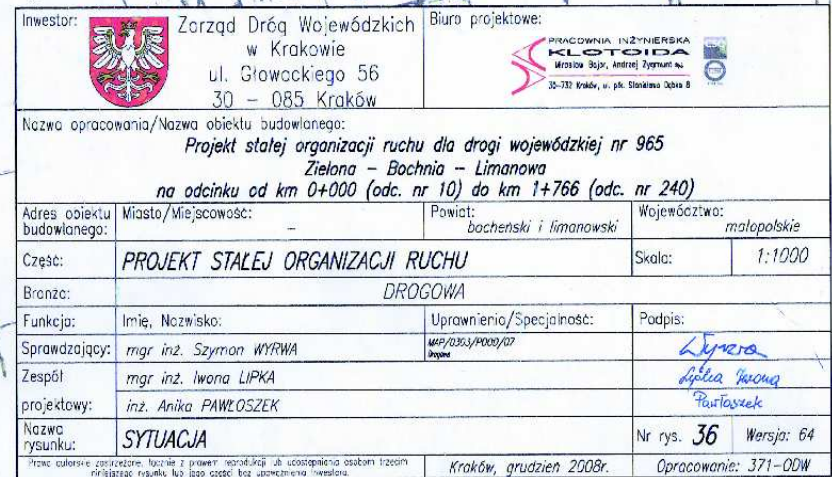 Inwestor:
Zarząd Dróg Wojewódzkich
w Krakowie
ul. Głowackiego 56
30 – 085 Kraków
Biuro projektowe:
PRACOWNIA INŻYNIERSKA
KLOTOIDA
Mirosław Bajor, Andrzej Zygmunt s.j.
30-732 Kraków, u. płk. Stanisława Dąbka 8
Nazwa opracowania/Nazwa obiektu budowlanego:
Projekt stałej organizacji ruchu dla drogi wojewódzkiej nr 965
Zielona – Bochnia – Limanowa
na odcinku od km 0+000 (odc. nr 10) do km 1+766 (odc. nr 240)
Adres obiektu budowlanego: Miasto/Miejscowość: – Powiat: bocheński i limanowski Województwo: małopolskie
Część: PROJEKT STAŁEJ ORGANIZACJI RUCHU Skala: 1:1000
Branża: DROGOWA
Funkcja: Imię, Nazwisko: Uprawnienia/Specjalność: Podpis:
Sprawdzający: mgr inż. Szymon WYRWA MAP/0303/POOD/07 Drogowa Wyrwa
Zespół mgr inż. Iwona LIPKA Lipka Iwona
projektowy: inż. Anika PAWŁOSZEK Pawłoszek
Nazwa rysunku: SYTUACJA Nr rys. 36 Wersja: 64
Prawa autorskie zastrzeżone, łącznie z prawem reprodukcji lub udostępniania osobom trzecim
niniejszego rysunku lub jego części bez upoważnienia Inwestora.
Kraków, grudzień 2008r. Opracowanie: 371-ODW